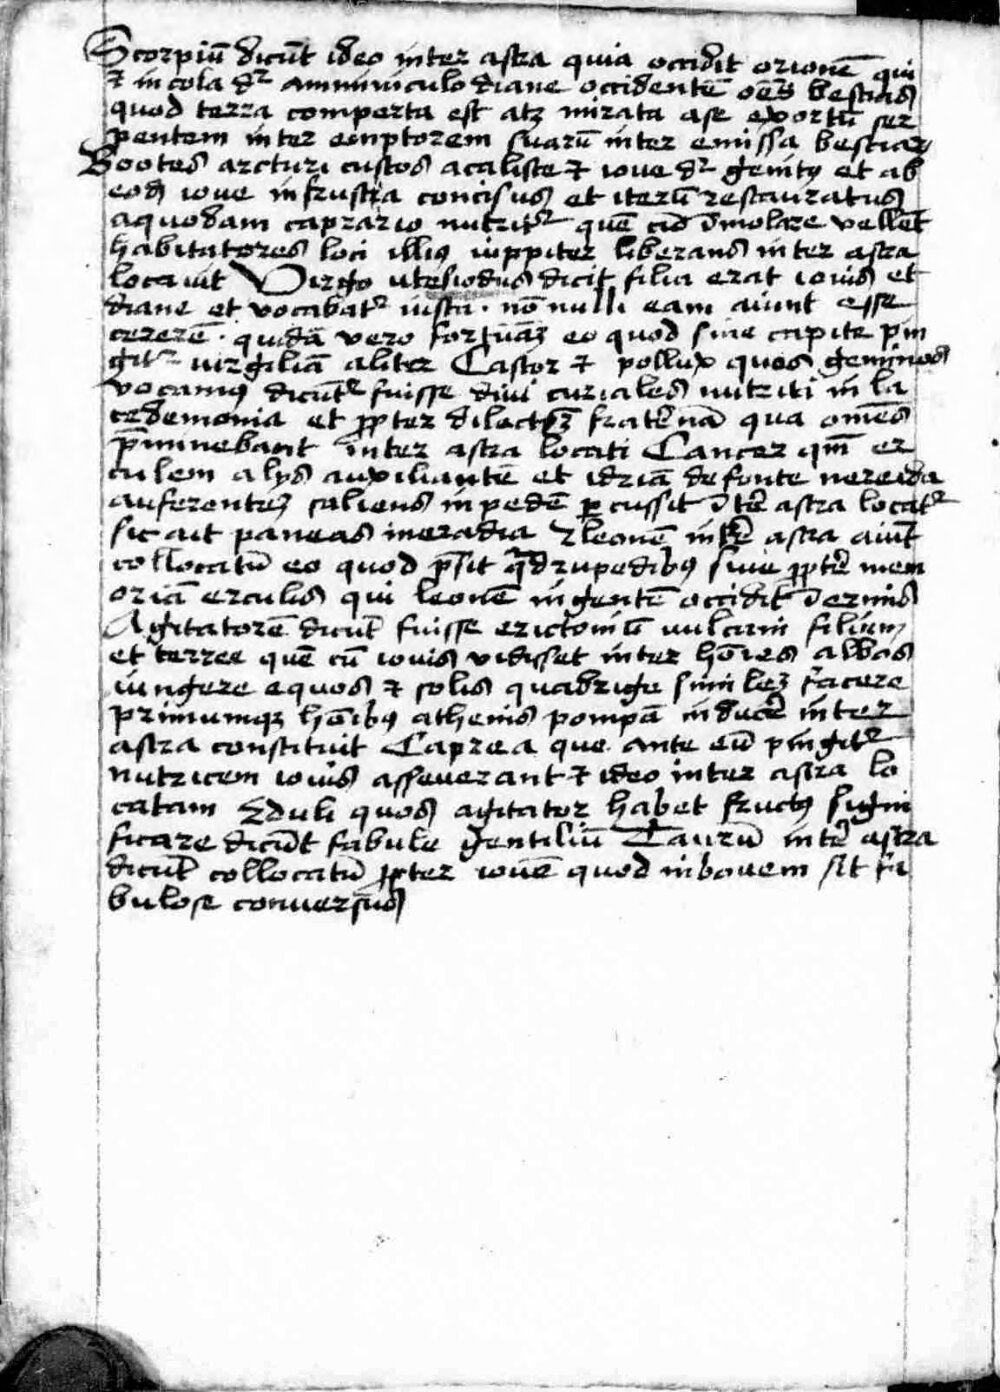 Scorpiū dicūt ideo inter astra quia occidit orionē qui
⁊ in cola dr̄ amminiculo diane occidentē oēs bestias
quod terra comperta est atq̄ mirata a se exortū ser
pentem inter emptorem suarū inter emissa bestiar̄
Bootes arcturi custos a caliste ⁊ ioue dr̄ genitꝰ et ab
eodē ioue in frustra concisus et iterū restauratus
a quodam caprario nutritr̄ quē cū īmolare vellēt
habitatores loci illiꝰ iuppiter liberans inter astra
locauit Virgo ut esiodus dicit filia erat iouis et
diane et vocabatr̄ iusta · nō nulli eam aiunt esse
cererē · quidā vero fortunā eo quod sine capite pin
gitr̄ uirgiliā aliter Castor ⁊ pollux quos geminos
vocamꝰ dicūtr̄ fuisse diui curiales nutriti in la
cedemonia et ꝓpter dilectōꝫ fraternā qua omēs
p̄minebant inter astra locati Cancer qm̄ er
culem alijs auxiliantē et idriā de fonte nereida
auferenteꝫ saliens in pedē ꝑcussit ītēr astra locatr̄
sic ait paneas in eradia ⁊ leonē intēr astra aiūt
collocatū eo quod p̄sit q̄drupedibꝰ siue ꝓptēr mem
oriā erculis qui leonē ingentē occidit ī ermis
Agitatorē dicūt fuisse erictoniū uulcani filium
et terree quē cū iouis vidisset inter hōīes albos
iungere equos ⁊ solis quadrige similez facere
primumqꝫ hōībꝰ athenis pompā inducēr inter
astra constituit Caprea que ante eū pingitr̄
nutricem iouis asseuerant ⁊ ideo inter astra lo
catam Eduli quos agitator habet fructꝰ signi
ficare dicūt fabule gentiliū Taurū intēr astra
dicūt collocatū ꝓpter iouē quod in bouem sit fa
bulose conuersus